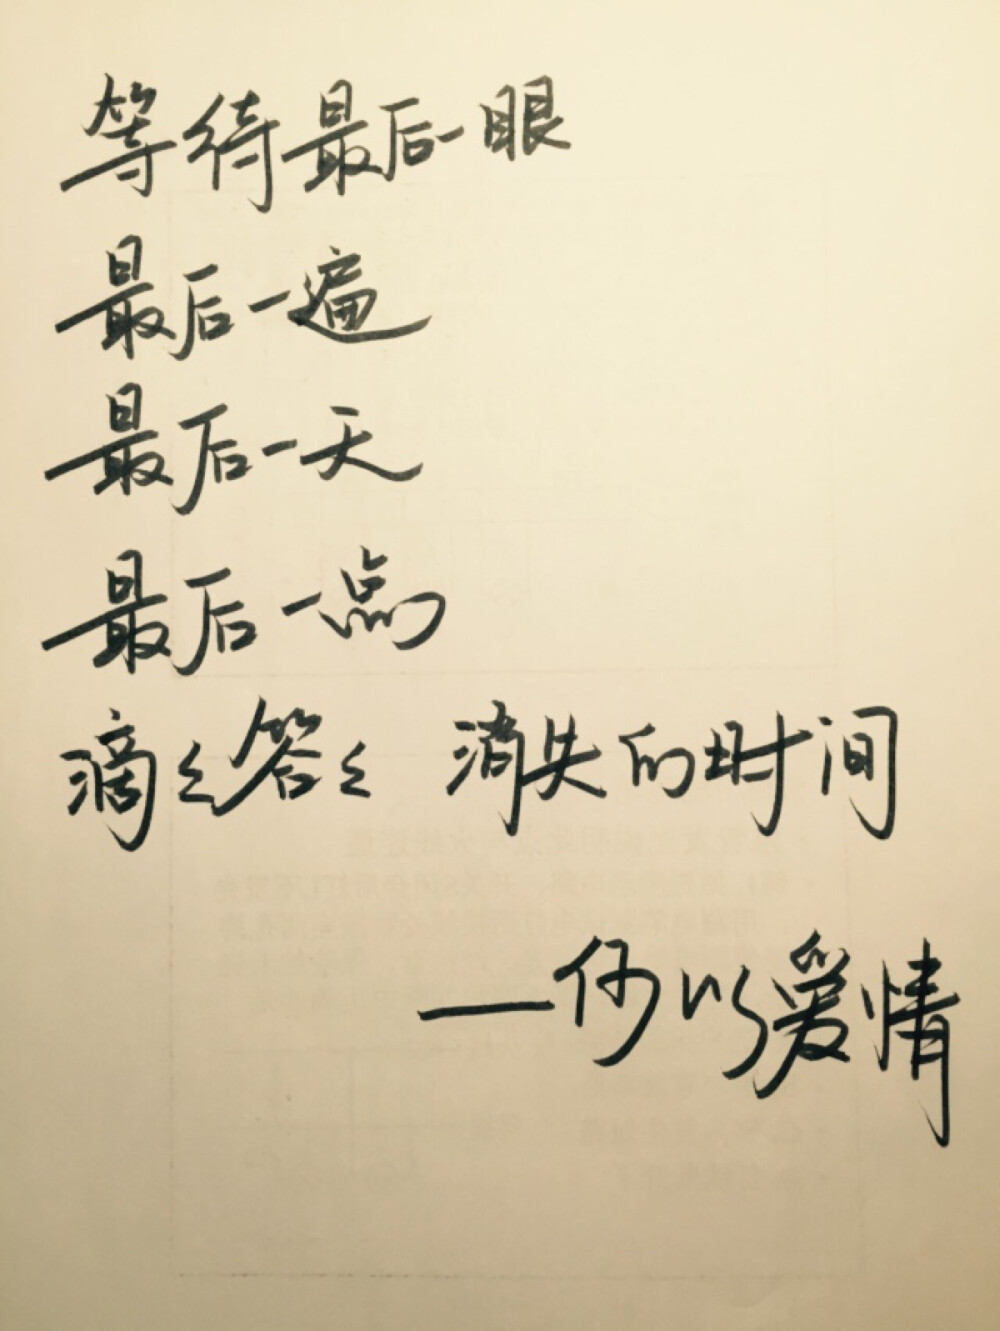 等待最后一眼
最后一遍
最后一天
最后一点
滴々答々 消失的时间
—何以爱情